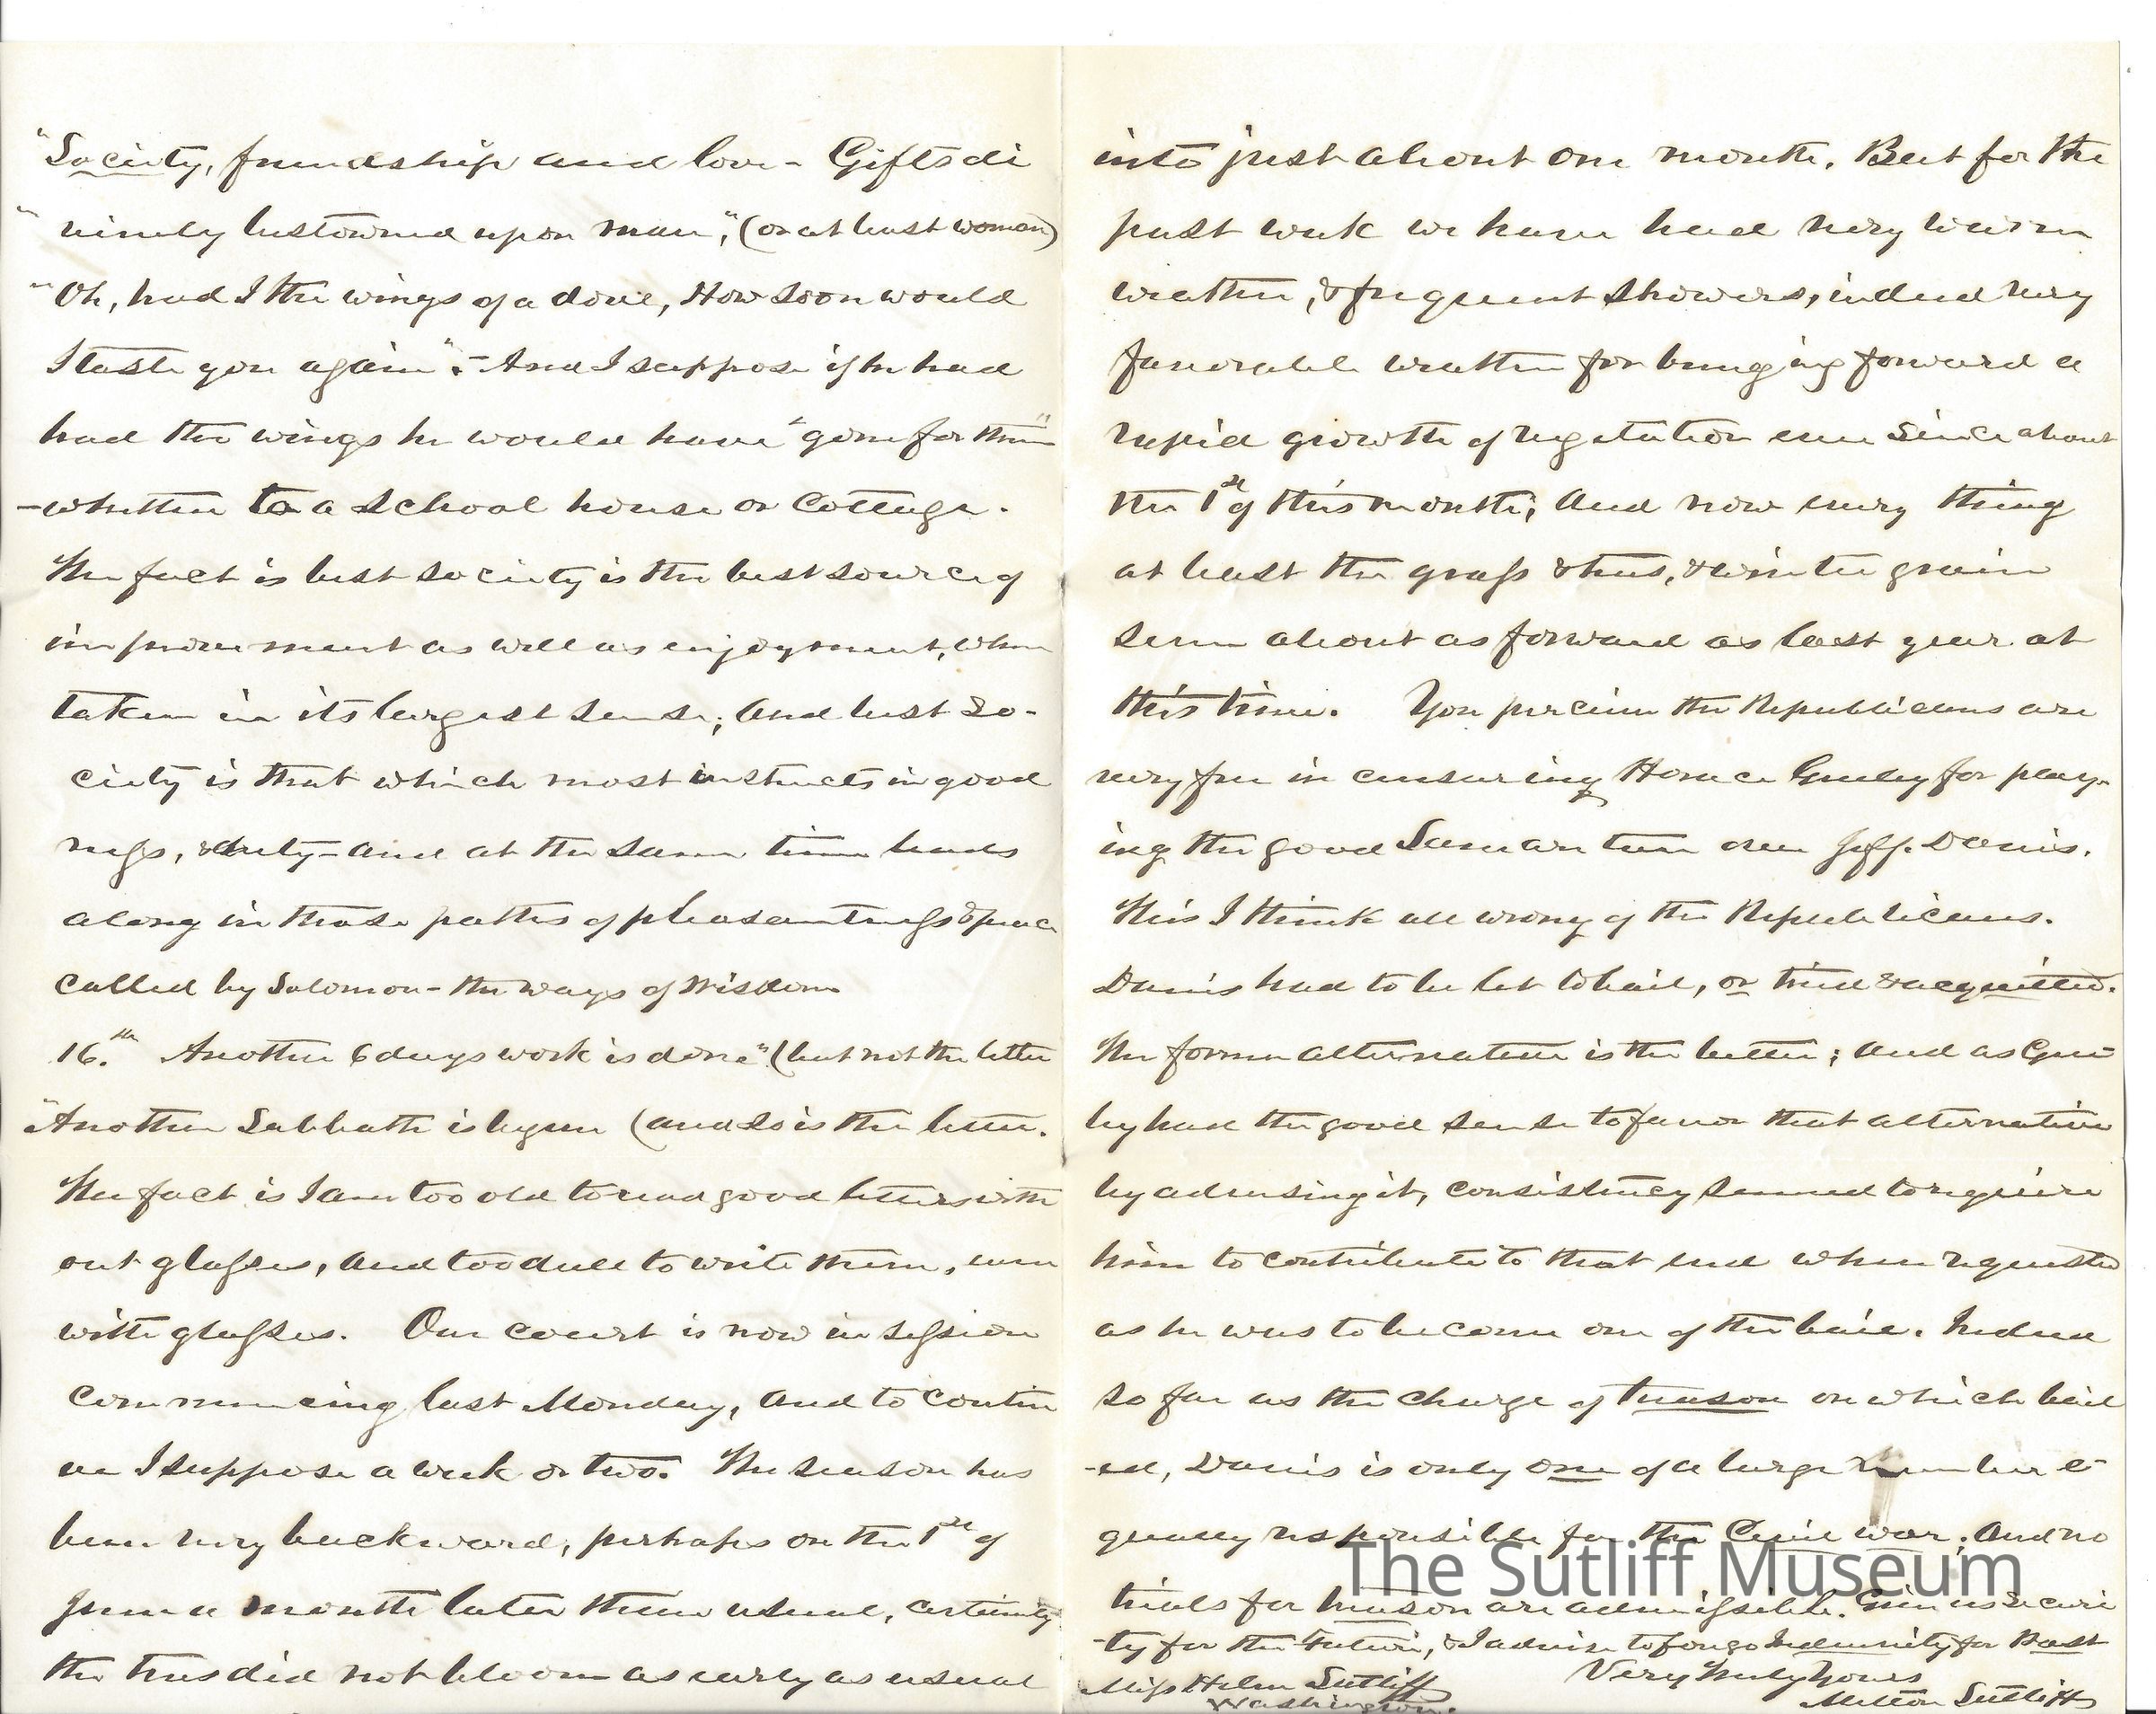 "Society, friendship and love - Gifts di
" vinely bestowed upon man", (or at least woman)
"Oh, had I the wings of a dove, How soon would
I taste you again". - And I suppose if he had
had the wings he would have "gone for them"
- whether to a school house or cottage.
The fact is best society is the best source of
improvement as well as enjoyment, when
taken in its largest sense; and best so-
ciety is that which most instructs in good
ness, & duty - and at the same time leads
along in those paths of pleasantness & peace
called by Solomon - the ways of Wisdom
16.th Another 6 days work is done" (but not the letter
"Another Sabbath is begun (and so is the letter.
The fact is I am too old to read good letters with
out glasses, and too dull to write them, even
with glasses. Our court is now in session
commencing last Monday, and to contin
ue I suppose a week or two. The season has
been very backward, perhaps on the 1st of
June a month later than usual, certainly
the trees did not bloom as early as usual
into just about one month. But for the
past week we have had very warm
weather, & frequent showers, indeed very
favorable weather for bringing forward a
rapid growth of vegetation ever since about
the 1st of this month; and now every thing
at least the grass & trees, & winter grain
seem about as forward as last year at
this time. You perceive the Republicans are
very free in censuring Horace Greeley for play-
ing the good Samaritan over Jeff. Davis.
This I think all wrong of the Republicans.
Davis had to be let to bail, or tried & acquitted.
The former alternative is the better; and as Gree-
ley had the good sense to favor that alternative
by advising it, consistency seemed to require
him to contribute to that end when requested
as he was to become one of the bail. Indeed
so far as the charge of treason on which bail
-ed, Davis is only one of a large number e-
qually responsible for the Civil war; and no
trials for treason are admissible. Given us securi
-ty for the Future, & I advise to forego Indemnity for Past
Very Truly Yours
Miss Helen Sutliff
Milton Sutliff
Washington.
The Sutliff Museum